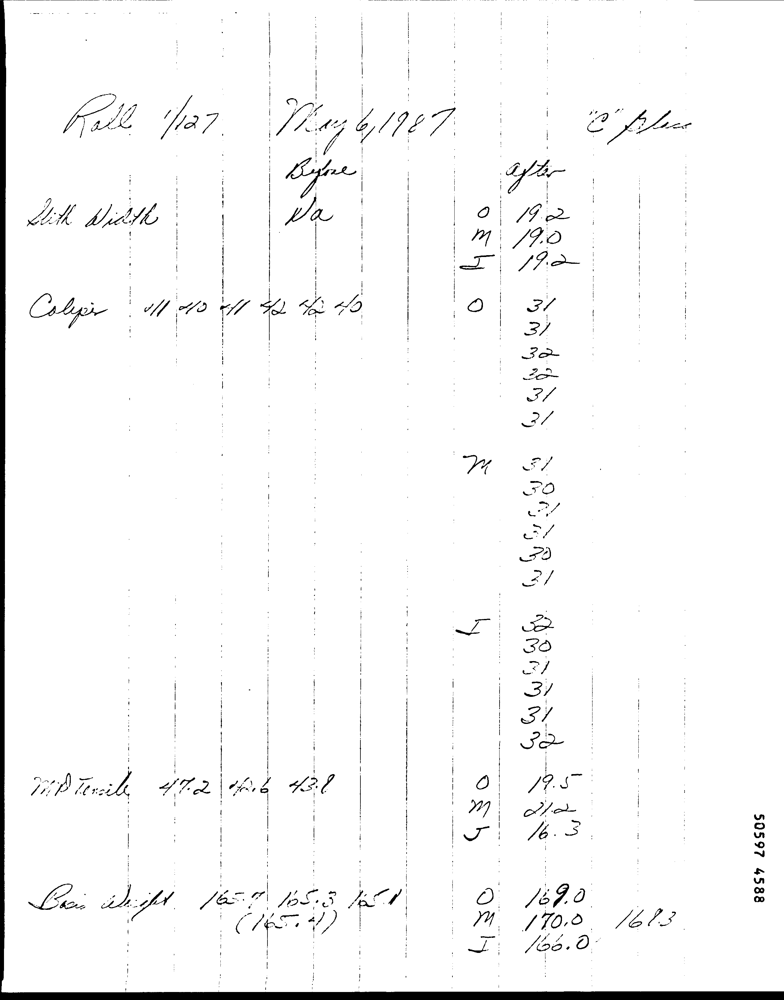 Roll 1/127 May 6, 1987 "C"
Before After
Slith Width Na O 19.2
M 19.0
I 19.2
Caliper 41 40 41 42 42 40 O 31
31
32
32
31
31
M 31
30
31
31
30
31
I 32
30
31
31
31
32
MD Tensile 47.2 42.6 43.8 O 19.5
M 21.2
I 16.3
Basis Weight 165.7 165.3 165.1 O 169.0
(165.4) M 170.0 168.3
I 166.0
50597 4588